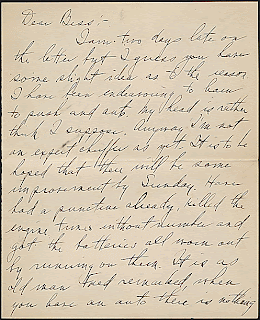 Dear Bess:-
I am two days late on
the letter but I guess you have
some slight idea as to the reason
I have been endeavoring to learn
to push and auto. My head is rather
thick I suppose. Anyway I'm not
an expert chaffer as yet. It is to be
hoped that there will be some
improvement by Sunday. Have
had a puncture already, killed the
engine times without number and
got the batteries all worn out
by running on them. It is as
old man remarked, when
you have an auto there is nothing